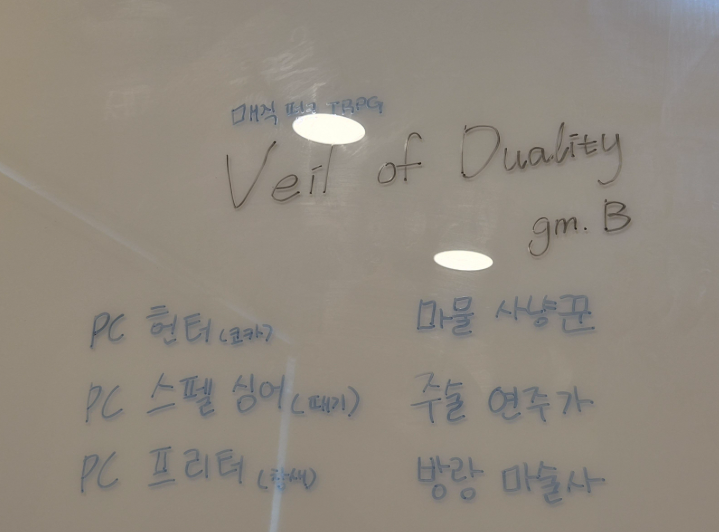 매직 TRPG
Veil of Duality
gm. B
PC 헌터(코카) 마물 사냥꾼
PC 스펠 싱어(때기) 주술 연주가
PC 프리터 방랑 마술사